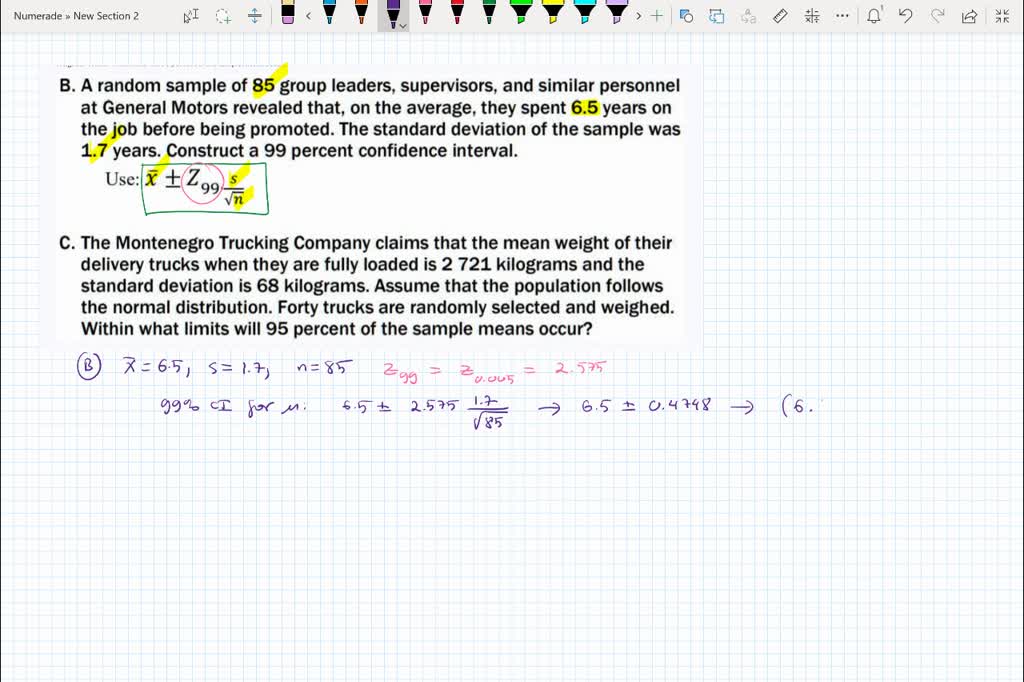 Numerade » New Section 2
B. A random sample of 85 group leaders, supervisors, and similar personnel
at General Motors revealed that, on the average, they spent 6.5 years on
the job before being promoted. The standard deviation of the sample was
1.7 years. Construct a 99 percent confidence interval.
Use: x̄ ± Z₉₉ s/√n
C. The Montenegro Trucking Company claims that the mean weight of their
delivery trucks when they are fully loaded is 2 721 kilograms and the
standard deviation is 68 kilograms. Assume that the population follows
the normal distribution. Forty trucks are randomly selected and weighed.
Within what limits will 95 percent of the sample means occur?
(B) x̄ = 6.5, s = 1.7, n = 85 z₉₉ = z₀.₀₀₅ = 2.575
99% CI for μ: 6.5 ± 2.575 1.7/√85 → 6.5 ± 0.4748 → (6.